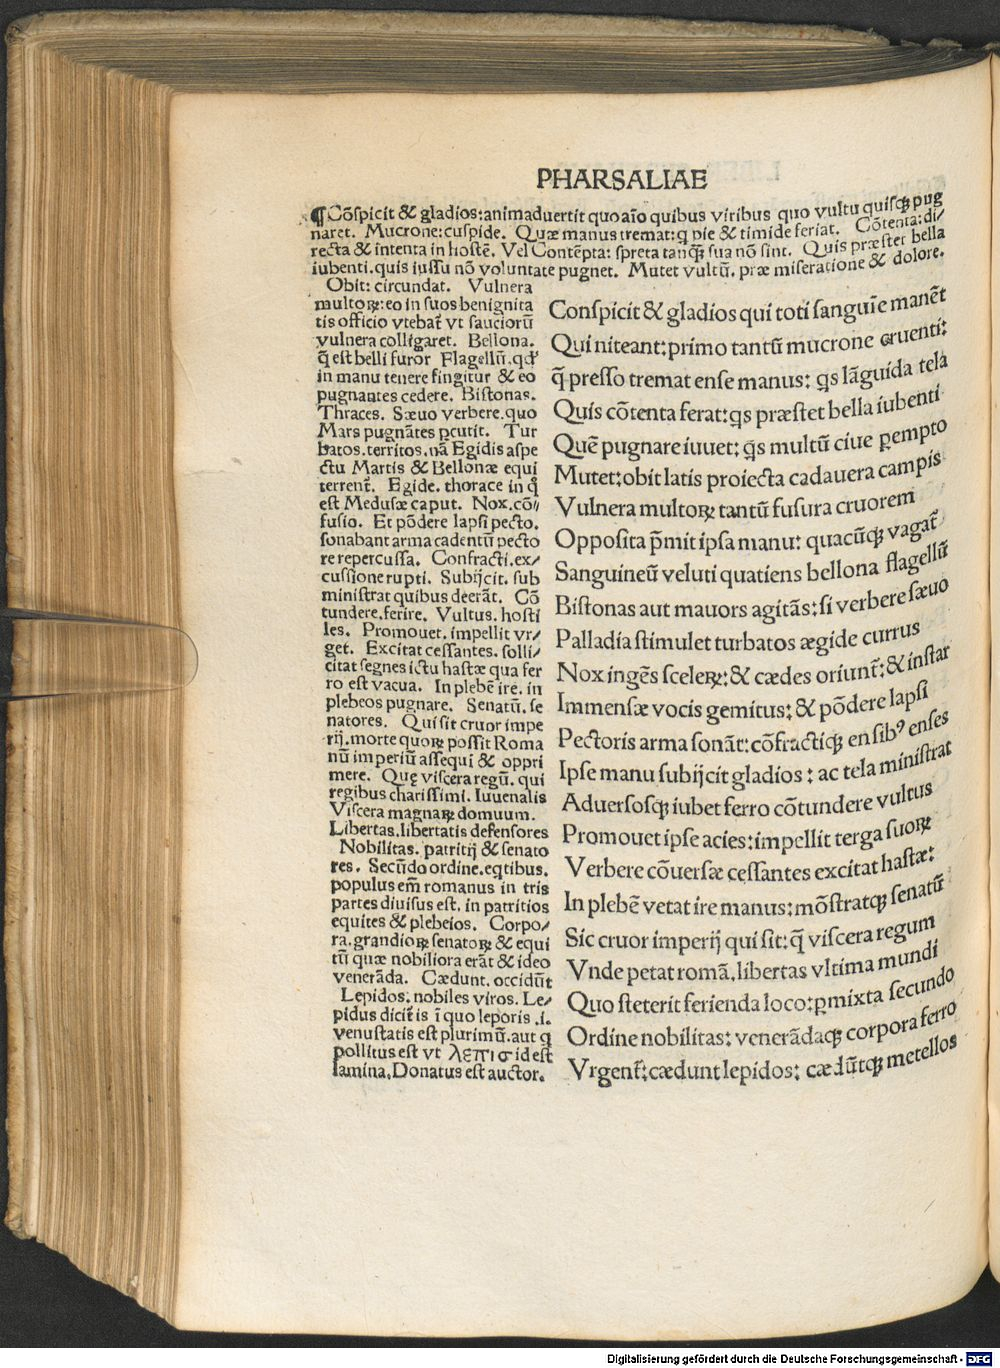 PHARSALIAE
¶Cõspicit & gladios:animaduertit quo aĩo quibus viribus quo vultu quisqꝫ pug
naret. Mucrone:cuspide. Quæ manus tremat:q pie & timide feriat. Cõtenta:di/
recta & intenta in hostẽ. Vel Contẽpta: spreta tanq̃ꝫ sua nõ sint. Quis præstet bella
iubenti.quis iussu nõ voluntate pugnet. Mutet vultũ. præ miseratione & dolore.
Obit: circundat. Vulnera
multoꝝ:eo in suos benignita
tis officio vtebat̃ vt sauciorũ
vulnera colligaret. Bellona.
q̃ est belli furor Flagellũ.qđ
in manu tenere fingitur & eo
pugnantes cedere. Bistonas.
Thraces. Sæuo verbere.quo
Mars pugnãtes ꝑcutit. Tur
batos.territos.nã Egidis aspe
ctu Martis & Bellonæ equi
terrent̃. Egide. thorace in q̃
est Medusæ caput. Nox.cõ/
fusio. Et põdere lapsi pecto.
sonabant arma cadentũ pecto
re repercussa. Confracti.ex/
cussione rupti. Subijcit. sub
ministrat quibus deerãt. Cõ
tundere.ferire. Vultus. hosti
les. Promouet. impellit vr/
get. Excitat cessantes. solli/
citat segnes ictu hastæ qua fer
ro est vacua. In plebẽ ire. in
plebeos pugnare. Senatũ. se
natores. Qui sit cruor impe
rij.morte quoꝝ possit Roma
nũ imperiũ assequi & oppri
mere. Quę viscera regũ. qui
regibus charissimi. Iuuenalis
Viscera magnaꝝ domuum.
Libertas.libertatis defensores
Nobilitas. patritij & senato
res. Secũdo ordine.eq̃tibus.
populus em̃ romanus in tris
partes diuisus est. in patritios
equites & plebeios. Corpo/
ra.grandioꝝ senatoꝝ & equi
tũ quæ nobiliora erãt & ideo
venerãda. Cædunt. occidũt
Lepidos: nobiles viros. Le/
pidus dicit̃ is ĩ quo leporis .i.
venustatis est plurimũ.aut q
pollitus est vt λεπισ id est
lamina.Donatus est auctor.
Conspicit & gladios qui toti sanguĩe manẽt
Qui niteant:primo tantũ mucrone cruenti:
q̃ presso tremat ense manus: qs lãguida tela
Quis cõtenta ferat:qs præstet bella iubenti
Quẽ pugnare iuuet: q̃s multũ ciue ꝑempto
Mutet:obit latis proiecta cadauera campis
Vulnera multoꝝ tantũ fusura cruorem
Opposita p̃mit ipsa manu: quacũqꝫ vagat̃
Sanguineũ veluti quatiens bellona flagellũ
Bistonas aut mauors agitãs:si verbere sæuo
Palladia stimulet turbatos ægide currus
Nox ingẽs sceleꝝ:& cædes oriunt̃:& instar
Immensæ vocis gemitus:& põdere lapsi
Pectoris arma sonãt:cõfractiqꝫ ensibꝰ enses
Ipse manu subijcit gladios : ac tela ministrat
Aduersosqꝫ iubet ferro cõtundere vultus
Promouet ipse acies:impellit terga suoꝝ
Verbere cõuersæ cessantes excitat hastæ:
In plebẽ vetat ire manus:mõstratqꝫ senatũ
Sic cruor imperij qui sit:q̃ viscera regum
Vnde petat romã.libertas vltima mundi
Quo steterit ferienda loco:ꝑmixta secundo
Ordine nobilitas: venerãdaqꝫ corpora ferro
Vrgent̃:cædunt lepidos: cædũtqꝫ metellos
Digitalisierung gefördert durch die Deutsche Forschungsgemeinschaft - DFG